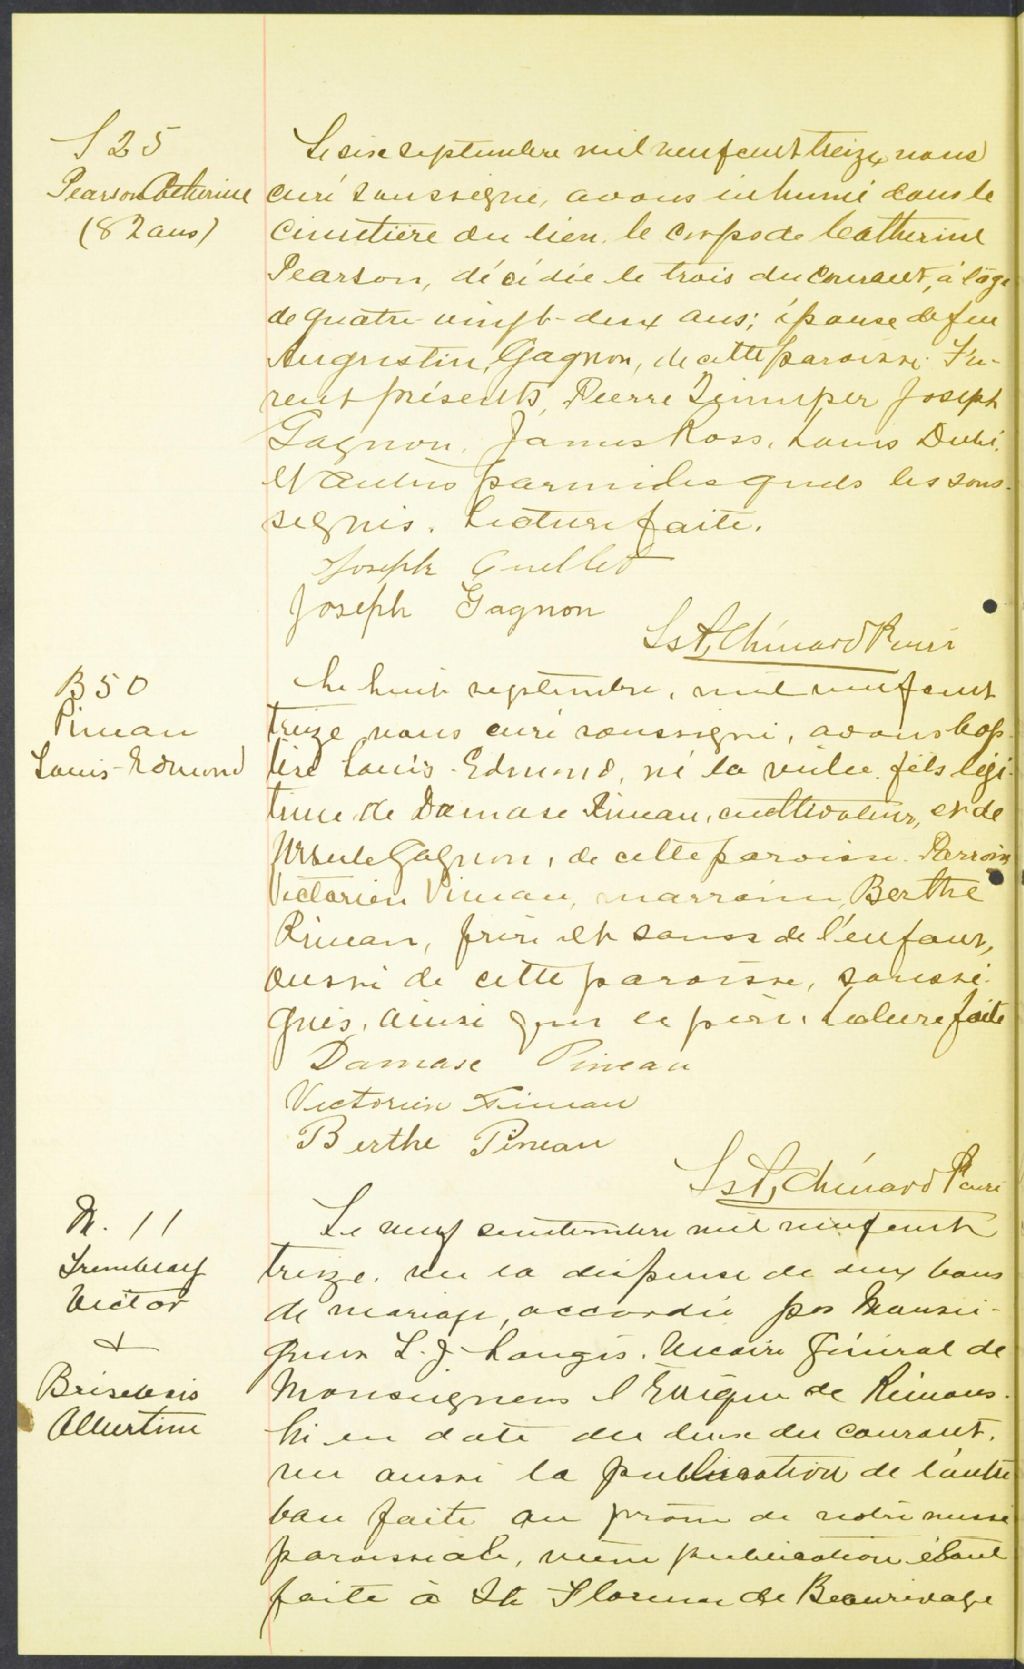 S 25
Pearson Catherine
(82 ans)
Le six septembre mil neuf cent treize, nous
curé soussigné, avons inhumé dans le
cimetière du lieu, le corps de Catherine
Pearson, décédée le trois du courant, à l'âge
de quatre-vingt-deux ans; épouse de feu
Augustin Gagnon, de cette paroisse. Fu-
rent présents, Pierre Joseph
Gagnon, James Ross, Louis Dubé,
et autres parmi lesquels les sous-
signés. Lecture faite.
Joseph Ouellet
Joseph Gagnon
Ls A. Chénard Ptre curé
B 50
Pineau
Louis-Edmond
Le huit septembre, mil neuf cent
treize nous curé soussigné, avons bap-
tisé Louis-Edmond, né la veille, fils légi-
time de Damase Pineau, cultivateur, et de
Ursule Gagnon, de cette paroisse. Parrain
Victorien Pineau, marraine, Berthe
Pineau, frère et soeur de l'enfant,
aussi de cette paroisse, soussi-
gnés, ainsi que le père. Lecture faite
Damase Pineau
Victorien Pineau
Berthe Pineau
Ls A. Chénard Ptre curé
M. 11
Tremblay
Victor
&
Brisebois
Albertine
Le neuf septembre mil neuf cent
treize, vu la dispense de deux bans
de mariage, accordée par Monsei-
gneur L. J. Langis, Vicaire Général de
Monseigneur l'Evêque de Rimous-
ki en date du deux du courant,
vu aussi la publication de l'autre
ban faite au prône de notre messe
paroissiale, même publication étant
faite à St Florence de Beaurivage